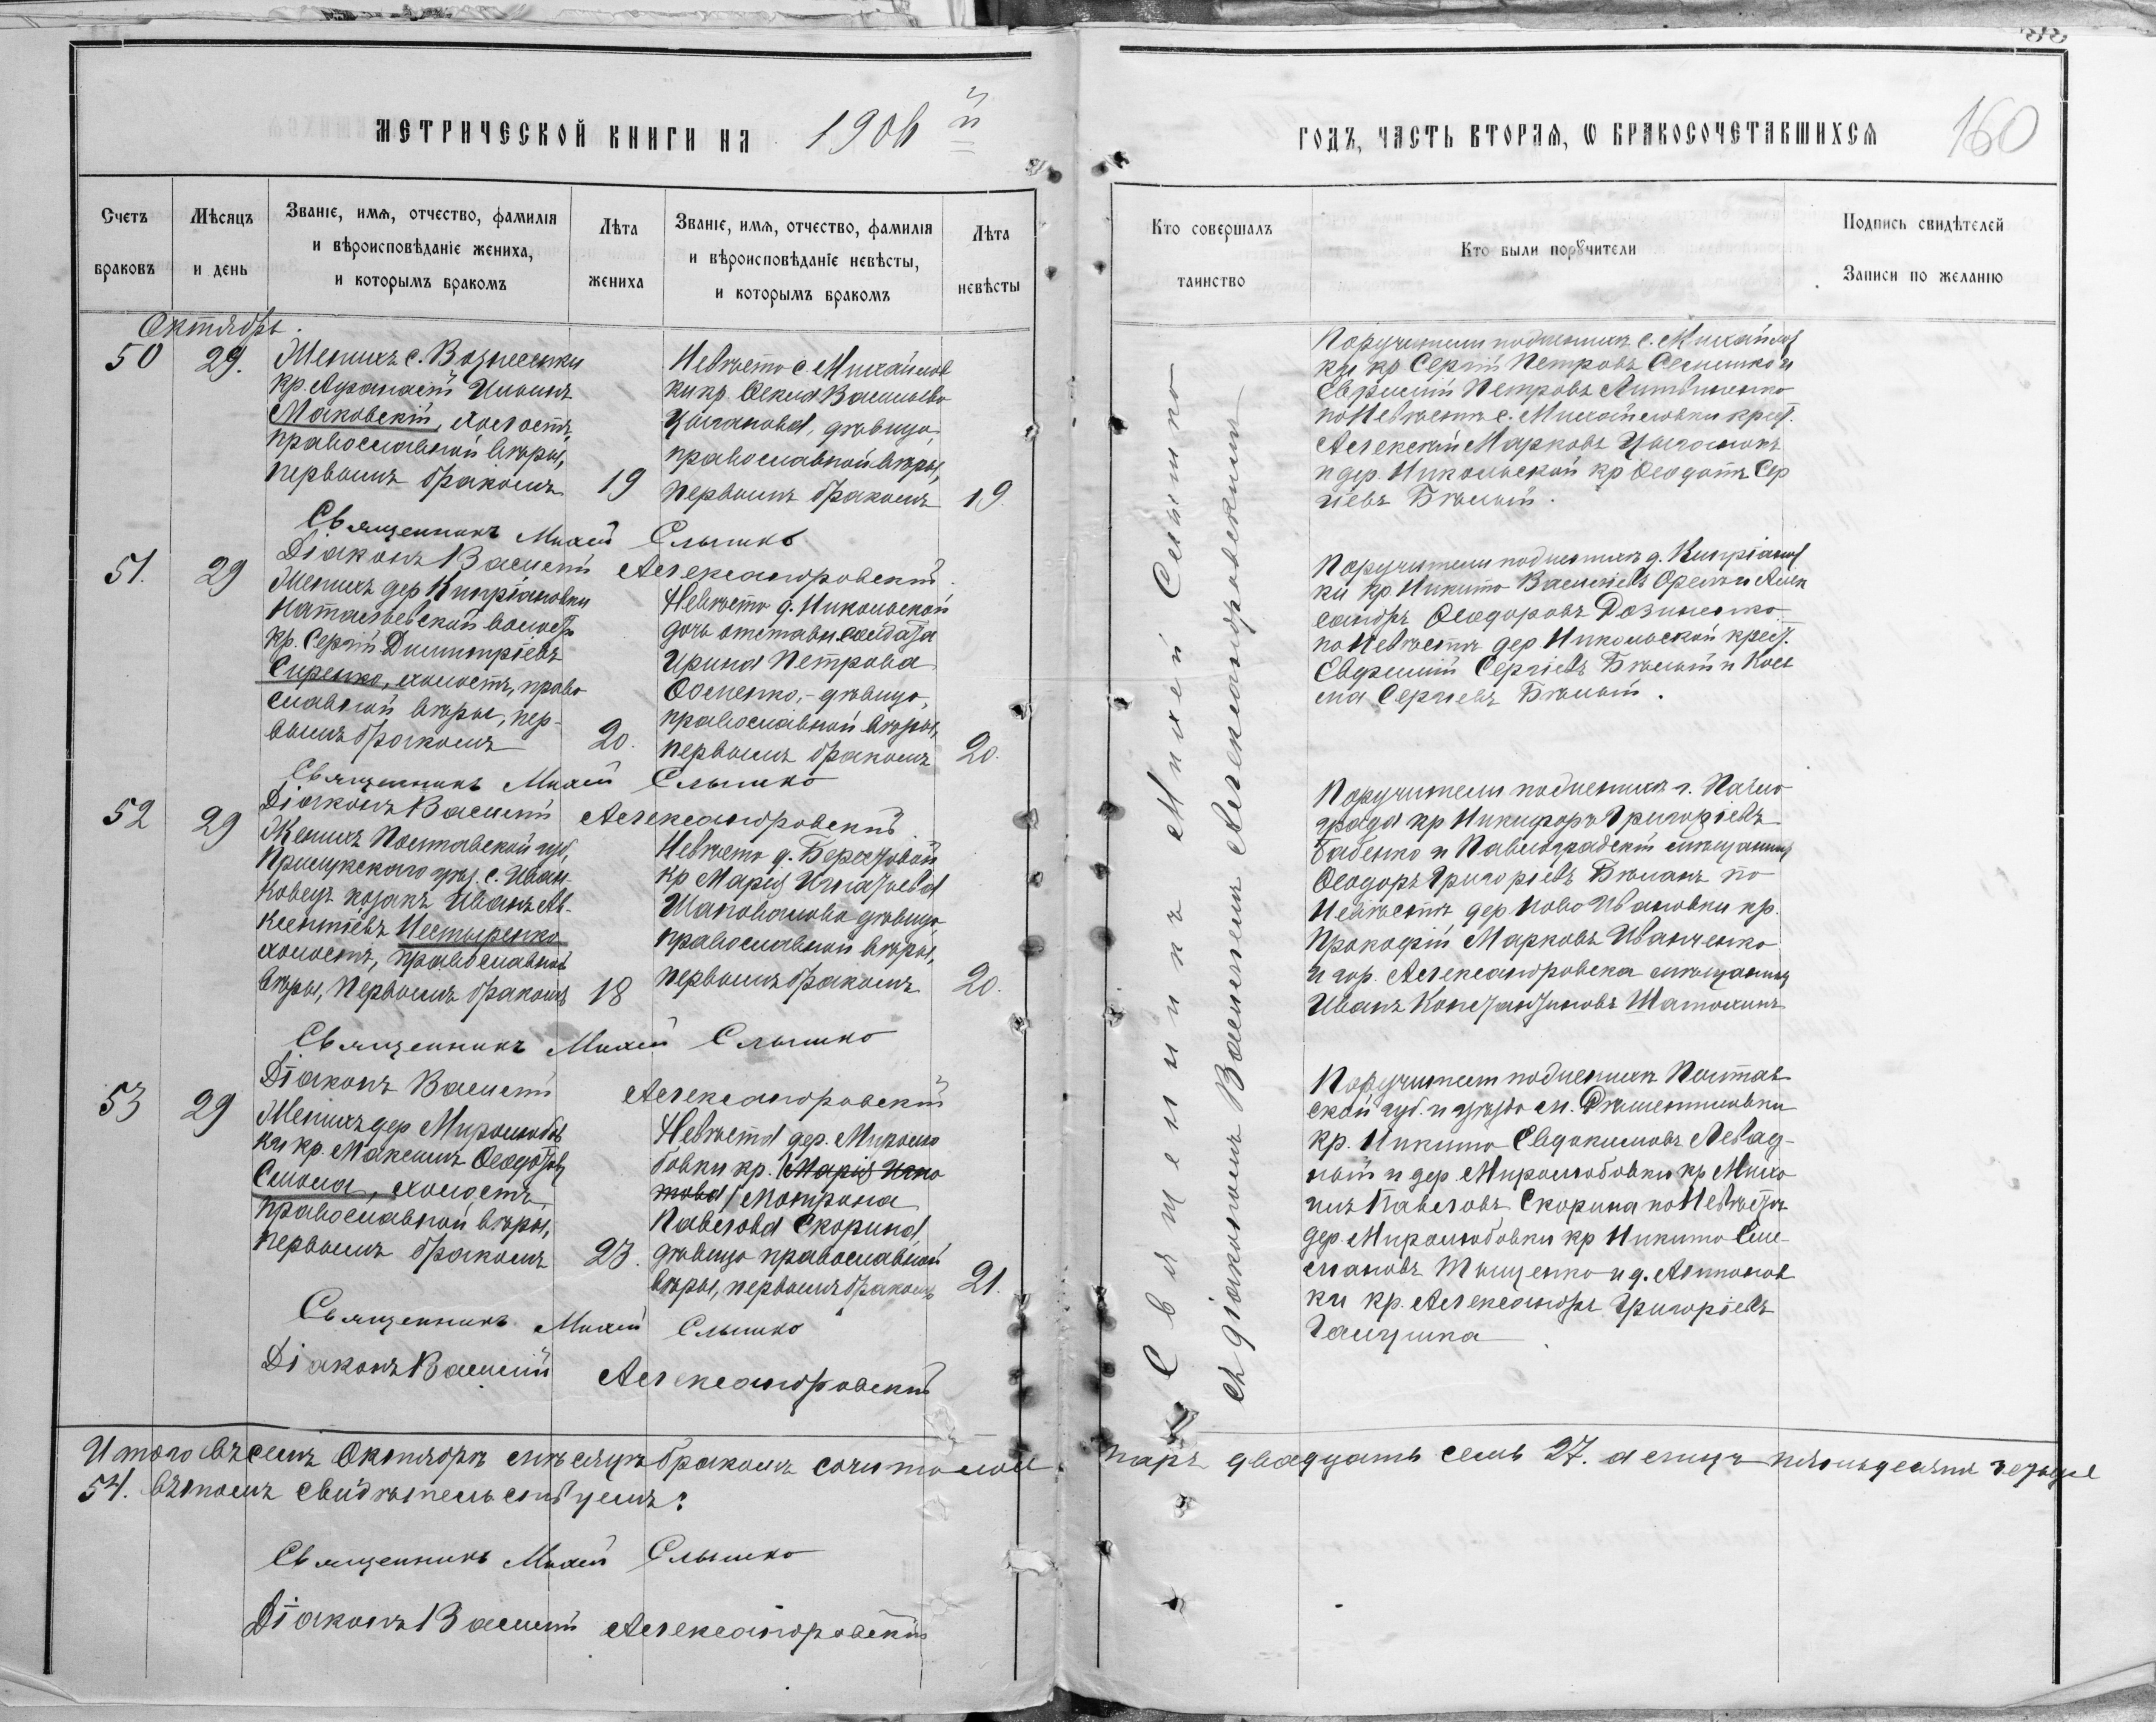 МЕТРИЧЕСКОЙ КНИГИ НА 1906 й
ГОДЪ, ЧАСТЬ ВТОРАЯ, Ѡ БРАКОСОЧЕТАВШИХСЯ
160
Счетъ браковъ
Мѣсяцъ и день
Званіе, имя, отчество, фамилія
и вѣроисповѣданіе жениха,
и которымъ бракомъ
Лѣта жениха
Званіе, имя, отчество, фамилія
и вѣроисповѣданіе невѣсты,
и которымъ бракомъ
Лѣта невѣсты
Кто совершалъ
таинство
Кто были порꙋчители
Подпись свидѣтелей
Записи по желанію
Октябрь.
50 29.
Женихъ с. Вознесенки
кр. Аѳанасій Ильинъ
Маковскій, холостъ,
православной вѣры,
первымъ бракомъ 19
Невѣста с. Михайлов
ки кр. Ѳекла Васильева
Цыганова, дѣвица,
православной вѣры,
первымъ бракомъ 19.
Поручители по женихѣ с. Михайлов
ки кр Сергій Петровъ Семешко и
Евфимій Петровъ Литвиненко
по Невѣстѣ с. Михайловки крест.
Алексѣй Марковъ Цыганокъ
и дер. Никольской кр Ѳеодотъ Сер
гіевъ Бѣлый.
Священникъ Михей Слышко
Діаконъ Василій Александровскій.
51. 29
Женихъ дер Кипріановки
Натальевской волости
кр. Сергій Димитріевъ
Сиренко, холостъ, право
славной вѣры, пер-
вымъ бракомъ 20.
Невѣста д. Никольской
дочь отставн. солдата
Ирина Петрова
дѣвица,
православной вѣры,
первымъ бракомъ 20.
Поручители по женихѣ д. Кипріанов
ки кр Никита Васильевъ и Алек
сандръ Ѳеодоровъ
по Невѣстѣ дер Никольской крест.
Евфимій Сергіевъ Бѣлый и Кось
ма Сергіевъ Бѣлый.
Священникъ Михей Слышко
Діаконъ Василій Александровскій.
52 29
Женихъ Полтавской губ,
Прилукскаго уѣз. с. Иван-
ковецъ козакъ Иванъ Ав-
ксентіевъ Нестыренко
холостъ, православной
вѣры, Первымъ бракомъ 18
Невѣста д. Березовой
кр Марія Игнатьева
Шаповалова дѣвица
православной вѣры,
первымъ бракомъ 20.
Поручители по женихѣ г. Павло
града кр Никифоръ Григоріевъ
Бабенко и Павлоградскій мѣщанинъ
Ѳеодоръ Григоріевъ Бѣланъ по
Невѣстѣ дер Ново Ивановки кр.
Прокофій Марковъ Иванченко
и гор. Александровска мѣщанинъ
Иванъ Константиновъ Шатохинъ
Священникъ Михей Слышко
Діаконъ Василій Александровскій
53 29
Женихъ дер Миролюбов
ки кр. Максимъ Ѳеодотовъ
Смола, холостъ,
православной вѣры,
первымъ бракомъ 23.
Невѣста дер. Миролю
бовки кр. (Марія Игна
това) Мотрона
Павлова Скорина
дѣвица православной
вѣры, первымъ бракомъ 21.
Поручители по женихѣ Полтав
ской губ. и уѣзда м.
кр. Никита Евдокимовъ Левад-
ный и дер. Миролюбовки кр Миха
илъ Павловъ Скорина по Невѣстѣ
дер Миролюбовки кр Никита Сте-
пановъ Тыщенко и д. Антонов
ки кр. Александръ Григоріевъ
Галушка
Священникъ Михей Слышко
Діаконъ Василій Александровскій
Священникъ Михей Слышко
съ діакономъ Василіемъ Александровскимъ
Итого въ семъ Октябрѣ мѣсяцѣ бракомъ сочиталось паръ двадцать семь 27. а лицъ пятьдесятъ четыре
54. въ томъ свидѣтельствуемъ:
Священникъ Михей Слышко
Діаконъ Василій Александровскій